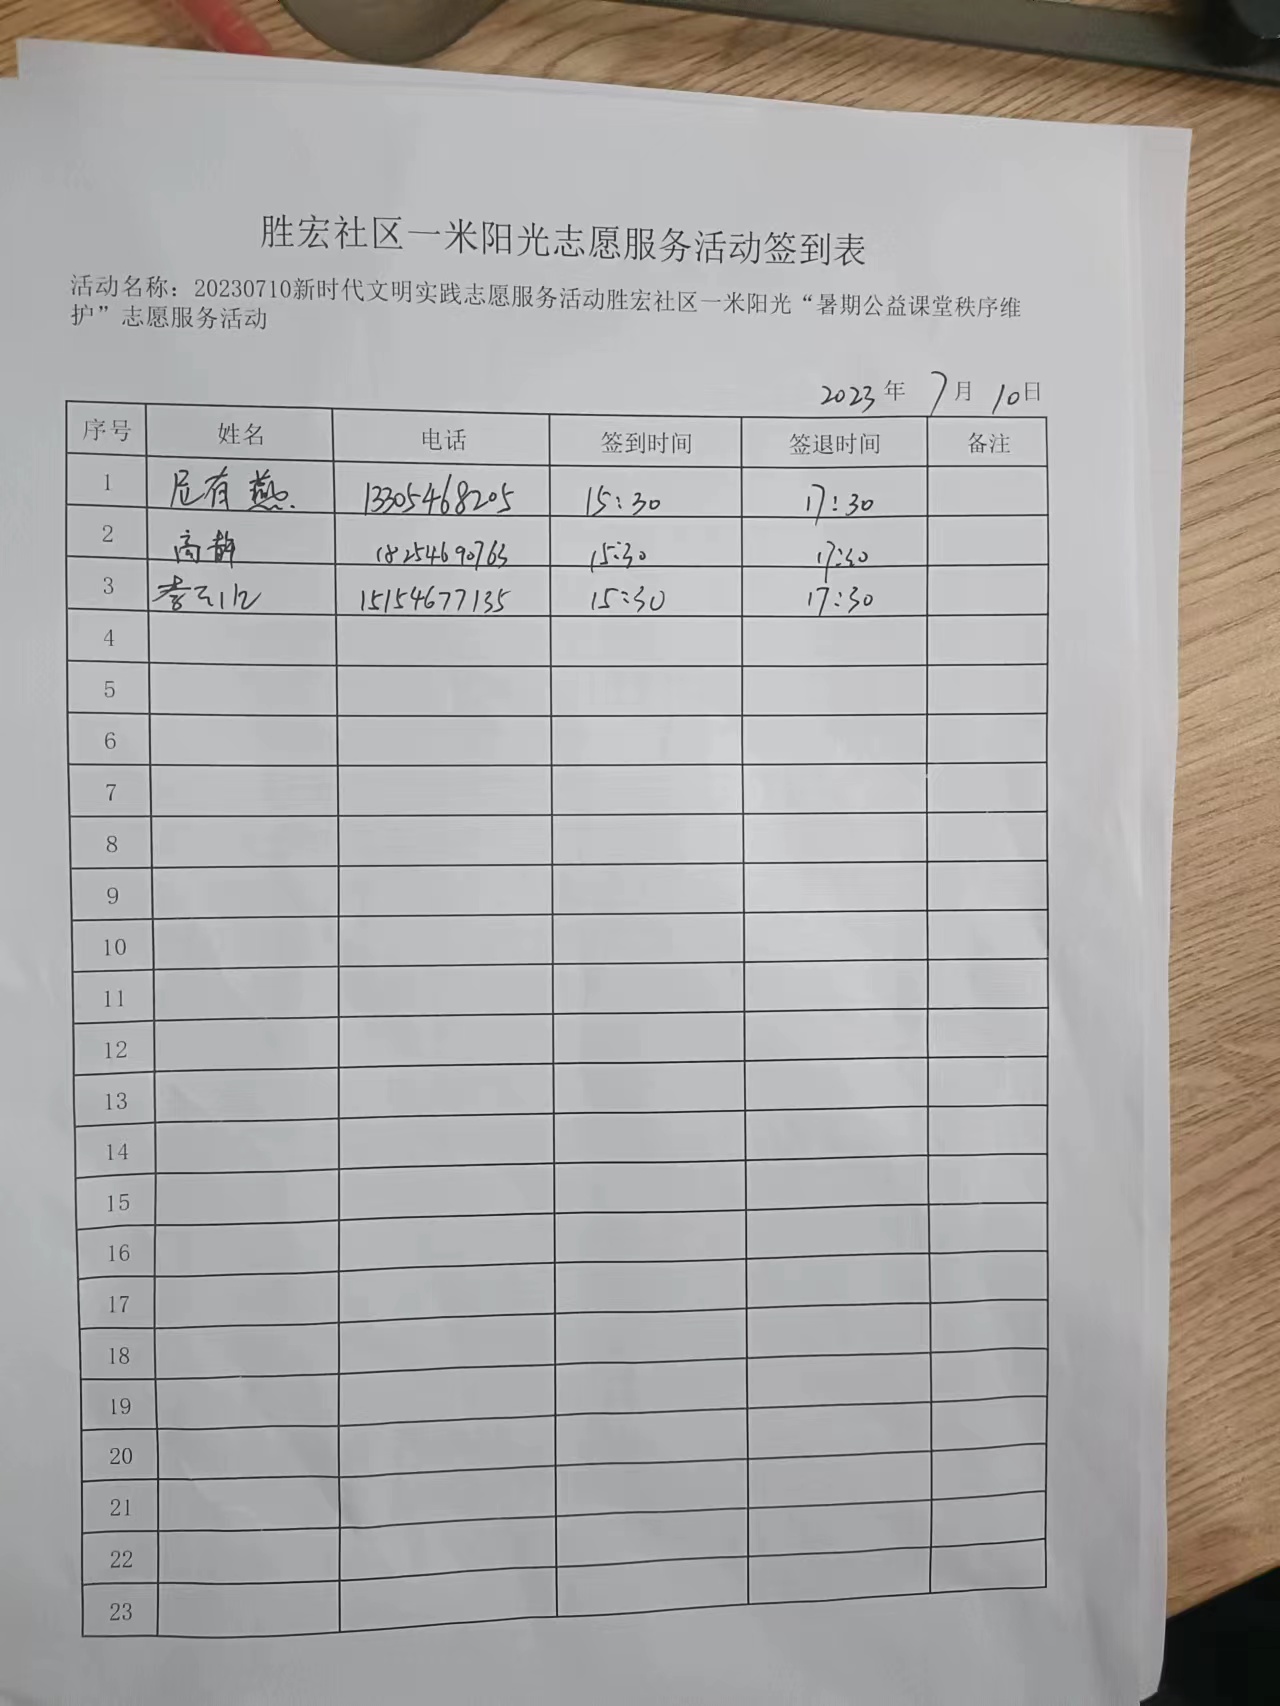 胜宏社区一米阳光志愿服务活动签到表
活动名称：20230710新时代文明实践志愿服务活动胜宏社区一米阳光“暑期公益课堂秩序维
护”志愿服务活动
2023年 7月 10日
序号 姓名 电话 签到时间 签退时间 备注
1 尼有燕 13305468205 15:30 17:30
2 高静 18254690763 15:30 17:30
3 15154677135 15:30 17:30
4
5
6
7
8
9
10
11
12
13
14
15
16
17
18
19
20
21
22
23